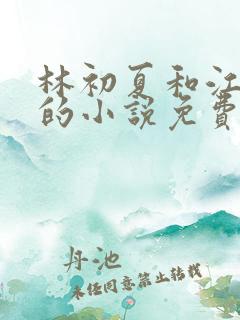 林初夏和江
的小說免費
丹池
未经同意禁止转载